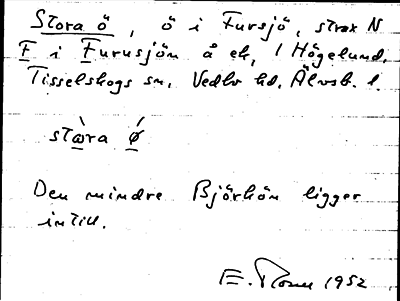 Stora ö, ö i Fursjö, strax N
F i Furusjön å ek, l Högelund,
Tisselskogs sn, Vedbo hd. Älvsb. l.
stɷ̀ra ǿ
Den mindre Björkön ligger
intill.
E. 1952